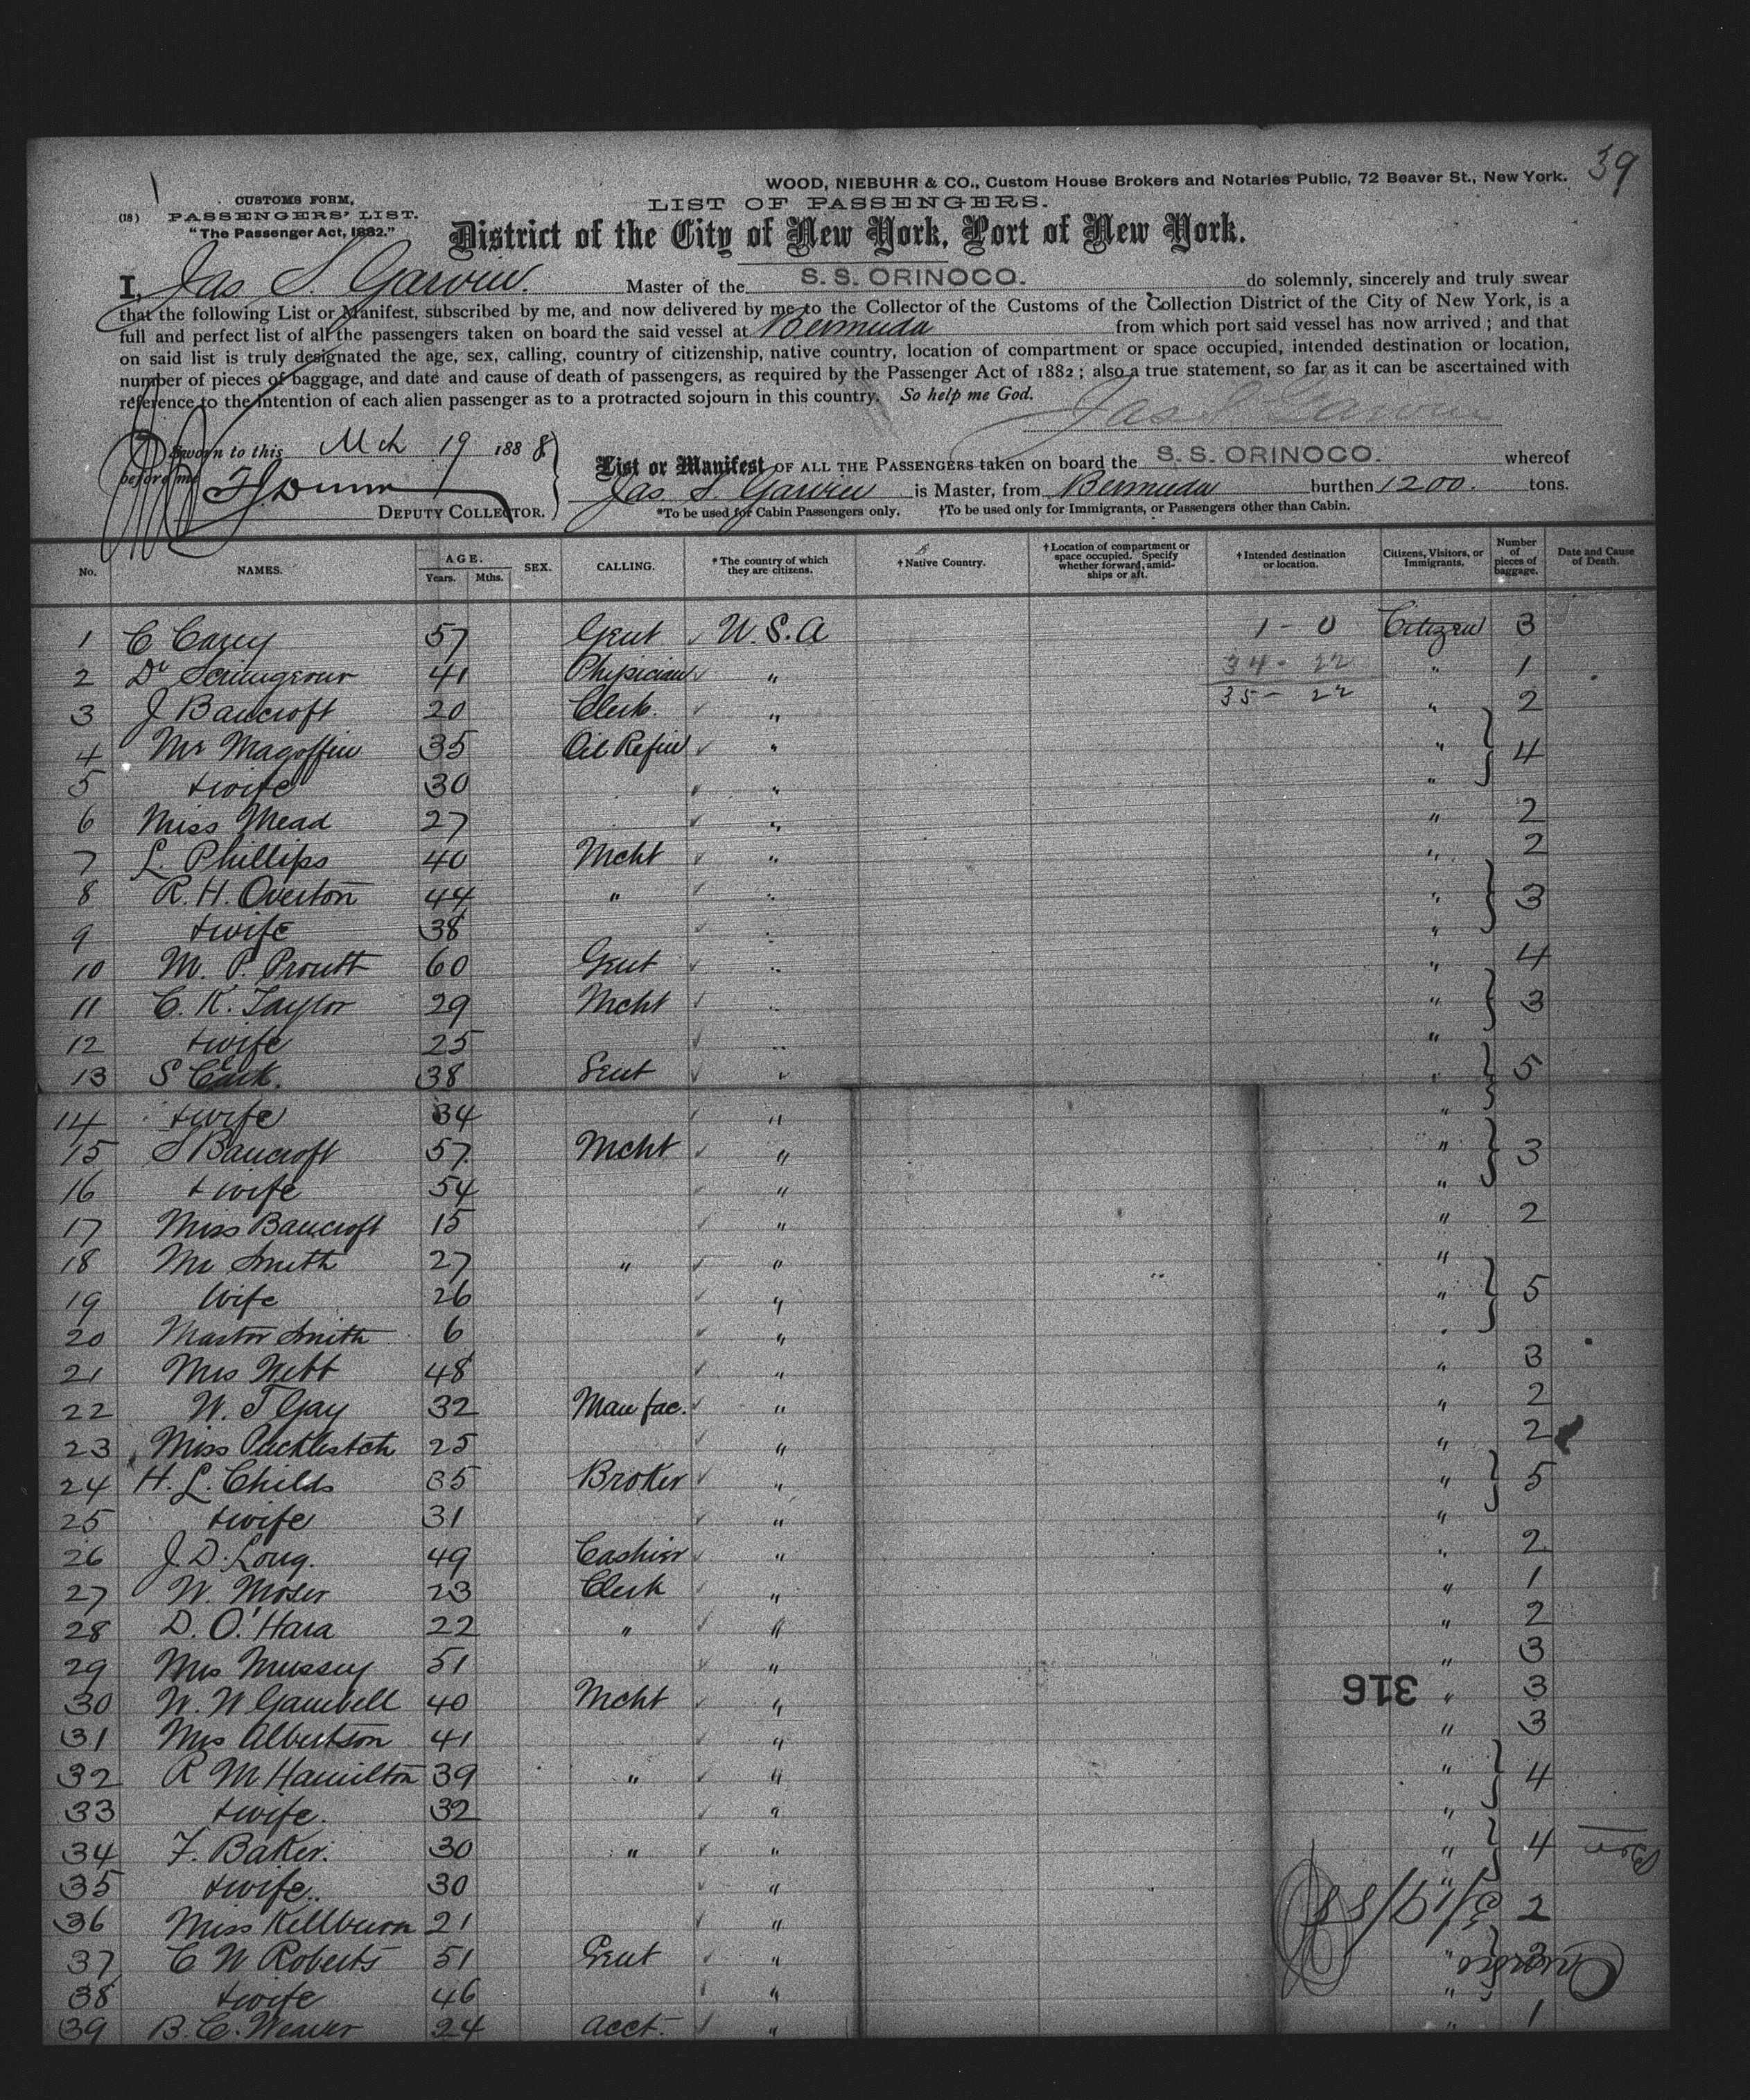 39
WOOD, NIEBUHR & CO., Custom House Brokers and Notaries Public, 72 Beaver St., New York.
CUSTOMS FORM,
(18) PASSENGERS' LIST.
"The Passenger Act, 1882."
LIST OF PASSENGERS.
District of the City of New York, Port of New York.
I, Jas S. Garvin. Master of the S. S. ORINOCO. do solemnly, sincerely and truly swear
that the following List or Manifest, subscribed by me, and now delivered by me to the Collector of the Customs of the Collection District of the City of New York, is a
full and perfect list of all the passengers taken on board the said vessel at Bermuda from which port said vessel has now arrived ; and that
on said list is truly designated the age, sex, calling, country of citizenship, native country, location of compartment or space occupied, intended destination or location,
number of pieces of baggage, and date and cause of death of passengers, as required by the Passenger Act of 1882 ; also a true statement, so far as it can be ascertained with
reference to the intention of each alien passenger as to a protracted sojourn in this country. So help me God.
Jas S Garvin
Sworn to this Mch 19 1888
before me
DEPUTY COLLECTOR.
List or Manifest OF ALL THE PASSENGERS taken on board the S. S. ORINOCO. whereof
Jas. S. Garvin is Master, from Bermuda burthen 1200. tons.
*To be used for Cabin Passengers only. †To be used only for Immigrants, or Passengers other than Cabin.
No. NAMES. AGE. Years. Mths. SEX. CALLING. *The country of which they are citizens. †Native Country. †Location of compartment or space occupied. Specify whether forward, amidships or aft. †Intended destination or location. Citizens, Visitors, or Immigrants. Number of pieces of baggage. Date and Cause of Death.
1 C Carey 57 Gent U.S.A 1 - 0 Citizen 3
2 Dr Scrimgeour 41 Physician " 34 - 22 " 1
3 J Bancroft 20 Clerk. " 35 - 22 " 2
4 Mr Magoffin 35 Oil Refin " " 4
5 + wife 30 " "
6 Miss Mead 27 " " 2
7 L. Phillips 40 Mcht " " 2
8 R. H. Overton 44 " " " 3
9 + wife 38 " "
10 M. P. Proutt 60 Gent " " 4
11 C. K. Taylor 29 Mcht " " 3
12 + wife 25 " "
13 S Clark. 38 Gent " " 5
14 + wife 34 " "
15 S Bancroft 57 Mcht " " 3
16 + wife 54 " "
17 Miss Bancroft 15 " " 2
18 Mr Smith 27 " " "
19 Wife 26 " " 5
20 Master Smith 6 " "
21 Mrs Webb 48 " " 3
22 W. T Gay 32 Manfac. " " 2
23 Miss 25 " " 2
24 H. L. Childs 35 Broker " " 5
25 + wife 31 " "
26 J. D. Long. 49 Cashier " " 2
27 W. Moser 23 Clerk " " 1
28 D. O'Hara 22 " " " 2
29 Mrs Mussey 51 " " 3
30 W. W Gambell 40 Mcht " 316 " 3
31 Mrs Albertson 41 " " 3
32 R M Hamilton 39 " " " 4
33 + wife. 32 " "
34 F. Baker. 30 " " " 4
35 + wife.. 30 " "
36 Miss Kellburn 21 " 3/19/88 2
37 C W Roberts 51 Gent " " 3
38 + wife 46 " "
39 B. C. Weaver 24 Acct. " " 1